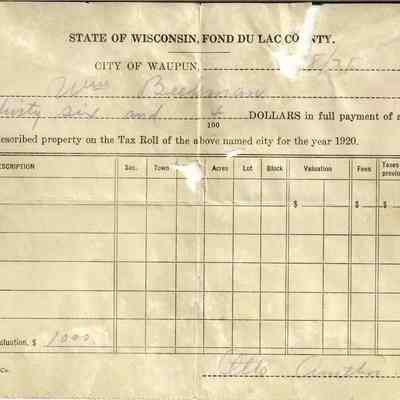 STATE OF WISCONSIN, FOND DU LAC COUNTY.
CITY OF WAUPUN,
Wm Beekman
six and 4/100 DOLLARS in full payment of
described property on the Tax Roll of the above named city for the year 1920.
DESCRIPTION Sec. Town Acres Lot Block Valuation Fees Taxes
$ $
Valuation, $ 1000
Otto
Co.